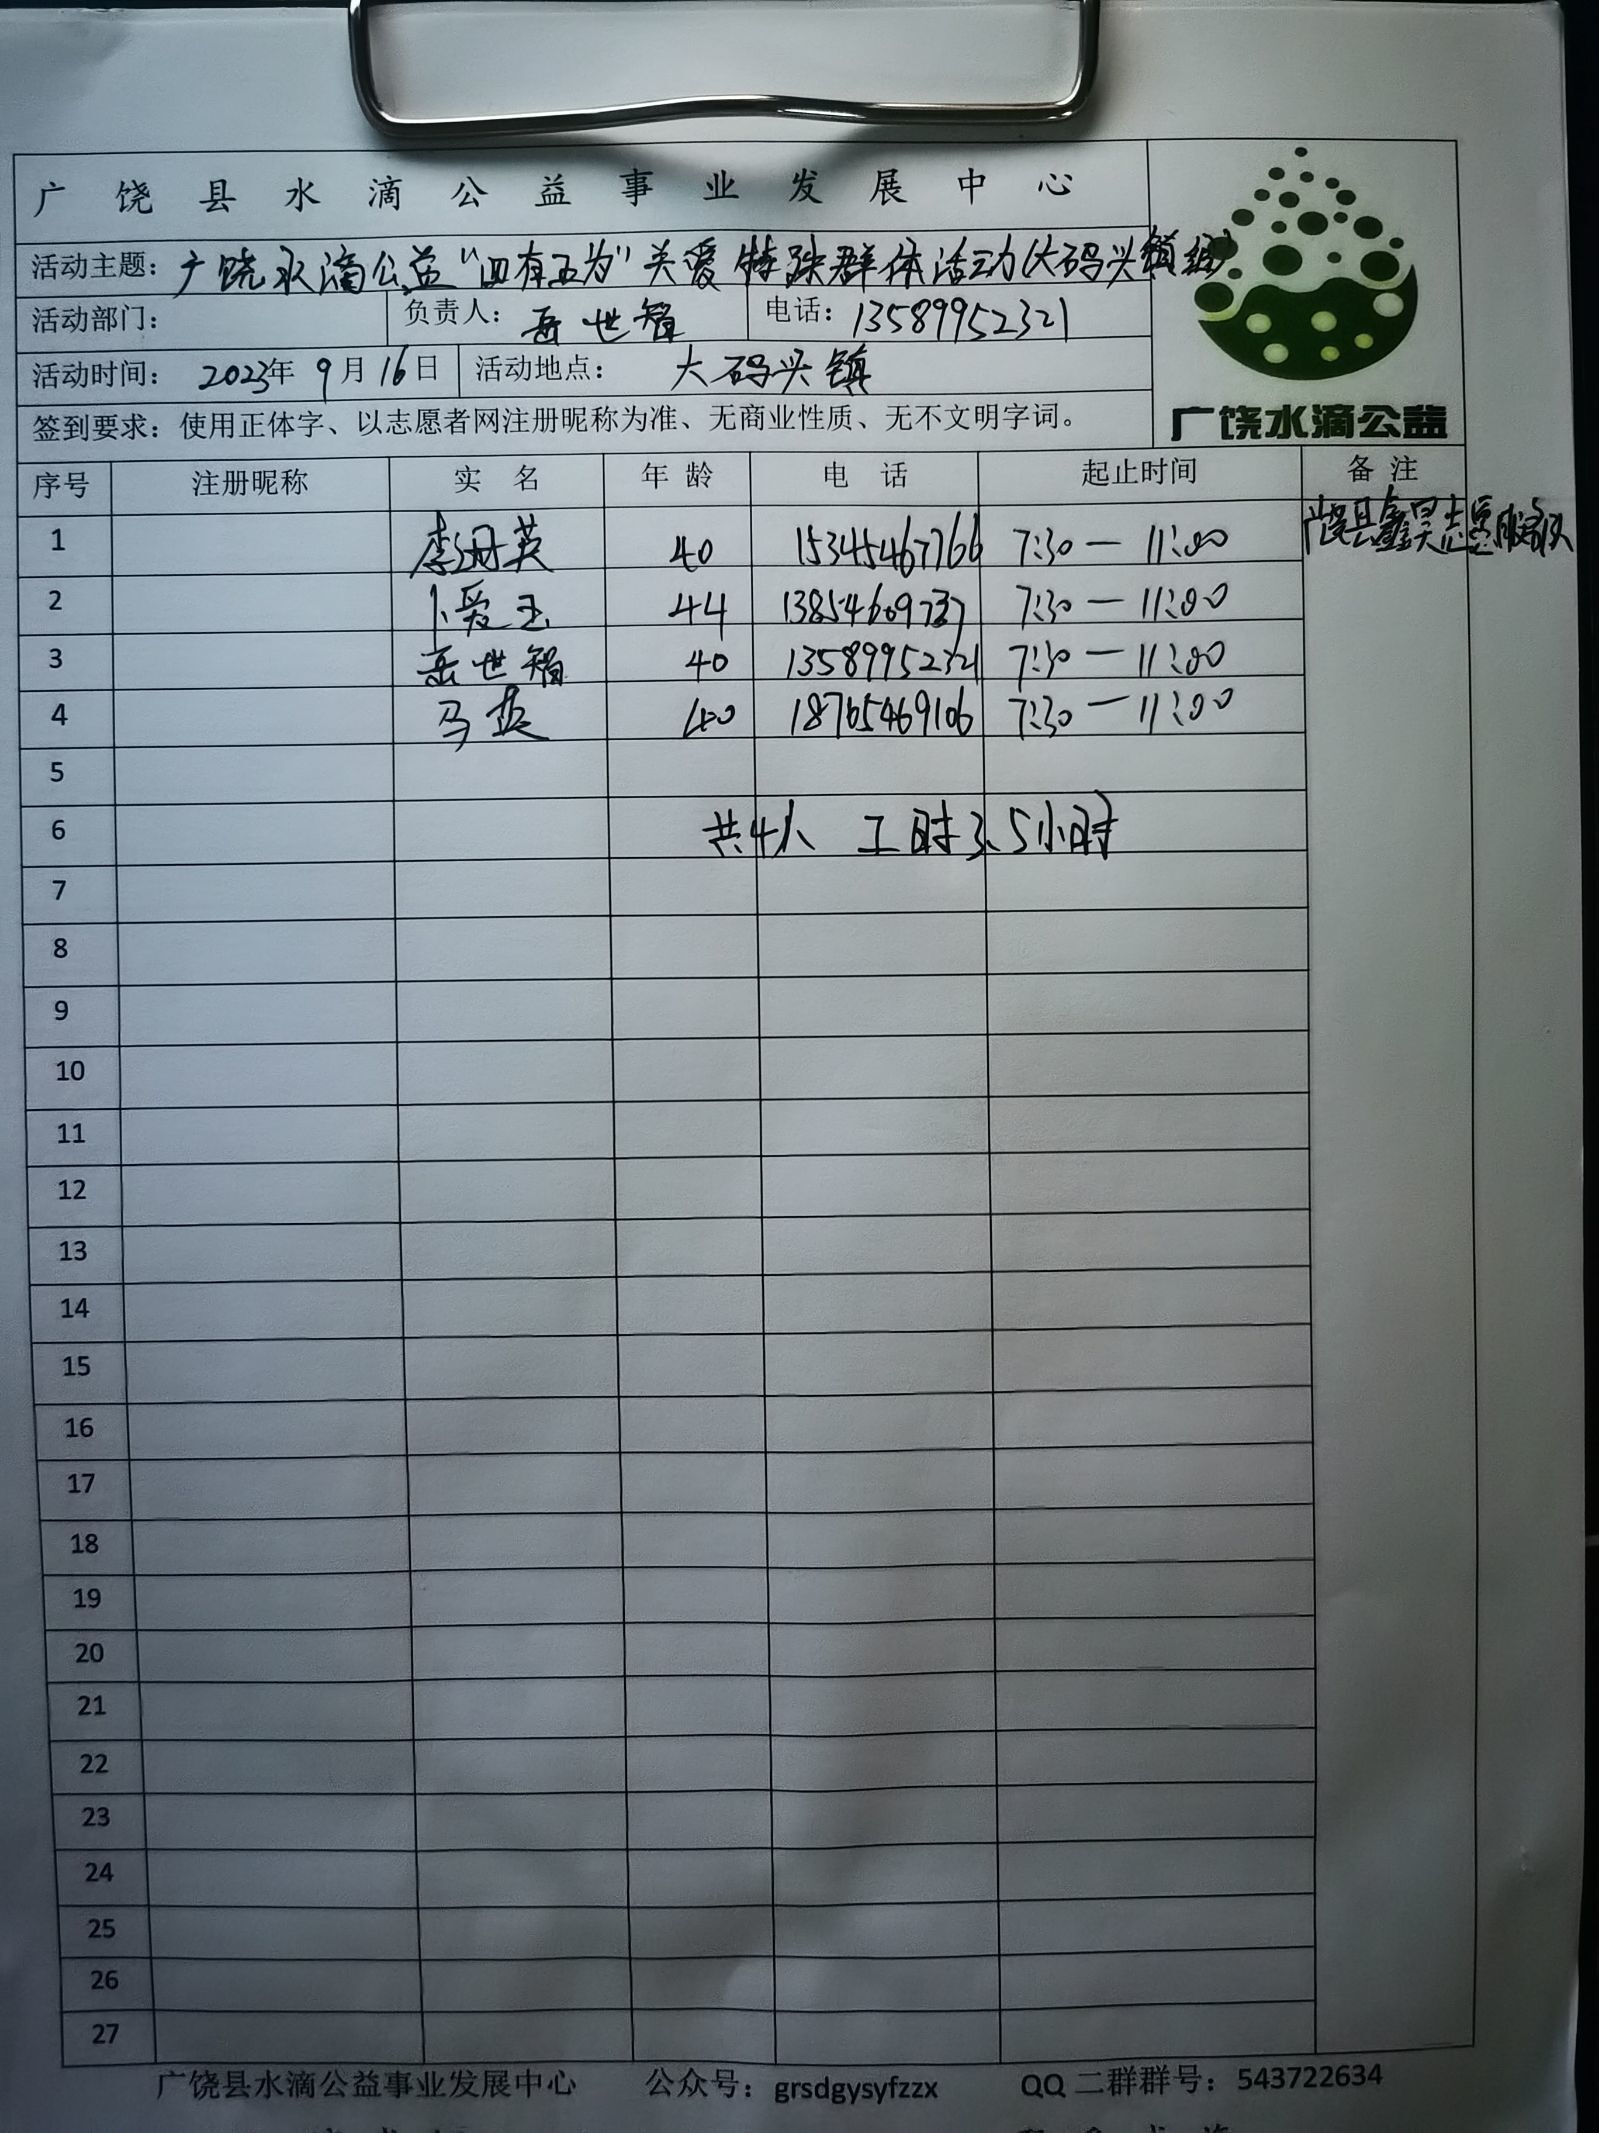 广饶县水滴公益事业发展中心
活动主题：广饶水滴公益“四有五为”关爱特殊群体活动(大码头镇组)
活动部门： 负责人：岳世智 电话：13589952321
活动时间：2023年9月16日 活动地点：大码头镇
签到要求：使用正体字、以志愿者网注册昵称为准、无商业性质、无不文明字词。
广饶水滴公益
序号 注册昵称 实名 年龄 电话 起止时间 备注
1 李丹英 40 15345467766 7:30—11:00 广饶县鑫昊志愿服务队
2 卜爱玉 44 13854609737 7:30—11:00
3 岳世智 40 13589952321 7:30—11:00
4 马英 40 18765469106 7:30—11:00
5
6 共4人 工时3.5小时
7
8
9
10
11
12
13
14
15
16
17
18
19
20
21
22
23
24
25
26
27
广饶县水滴公益事业发展中心 公众号：grsdgysyfzzx QQ二群群号：543722634